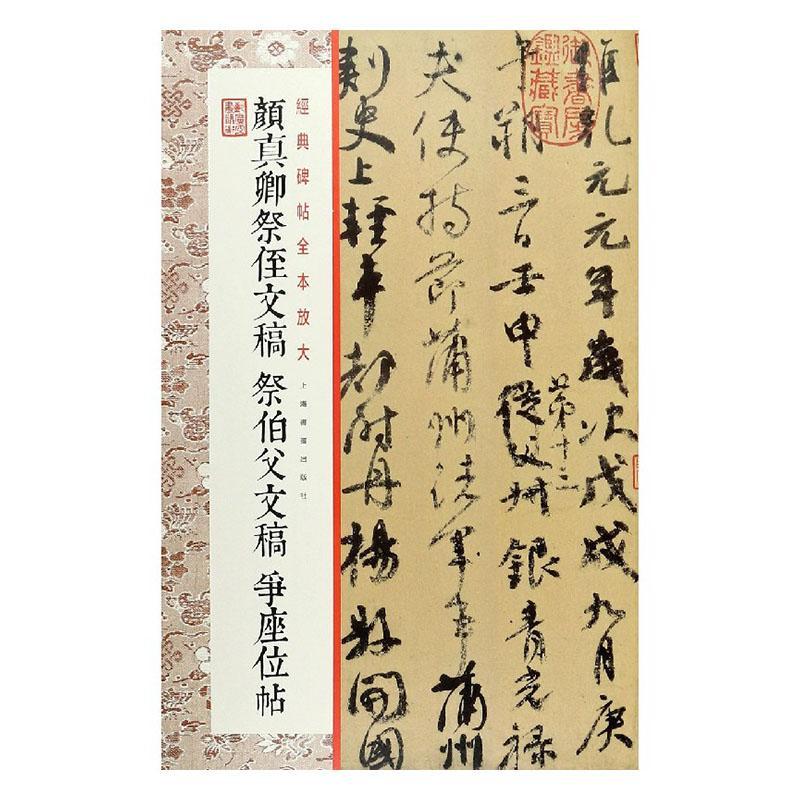 御書房鑑藏寶
維乾元元年歲次戊戌九月庚
午朔三日壬申從父叔銀青光祿
第十三
夫使持節蒲州諸軍事蒲州
刺史上輕車都尉丹楊縣開國
經典碑帖全本放大
上海書畫出版社
顏真卿祭侄文稿 祭伯父文稿 爭座位帖